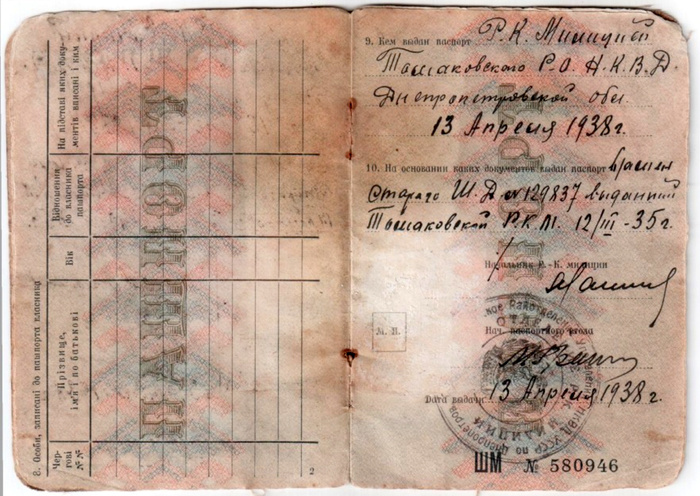 8. Особи, записані до пашпорта власника
Чергові №№
Прізвище,
ім'я і по батькові
Вік
Відношення
до власника
пашпорта
На підставі яких доку-
ментів вписані і ким
ПАШПОРТ
2
9. Кем выдан паспорт Р.К. Милицией
Томаковского Р.О Н.К.В.Д
Днепропетровской обл
13 Апреля 1938г.
10. На основании каких документов выдан паспорт
Стараго Ш.Д № 129837 выданный
Томаковской Р.К.М. 12/III-35г.
Начальник Р.-К. милиции
М. П.
Нач. паспортного стола
Дата выдачи: 13 Апреля 1938г.
ШМ № 580946